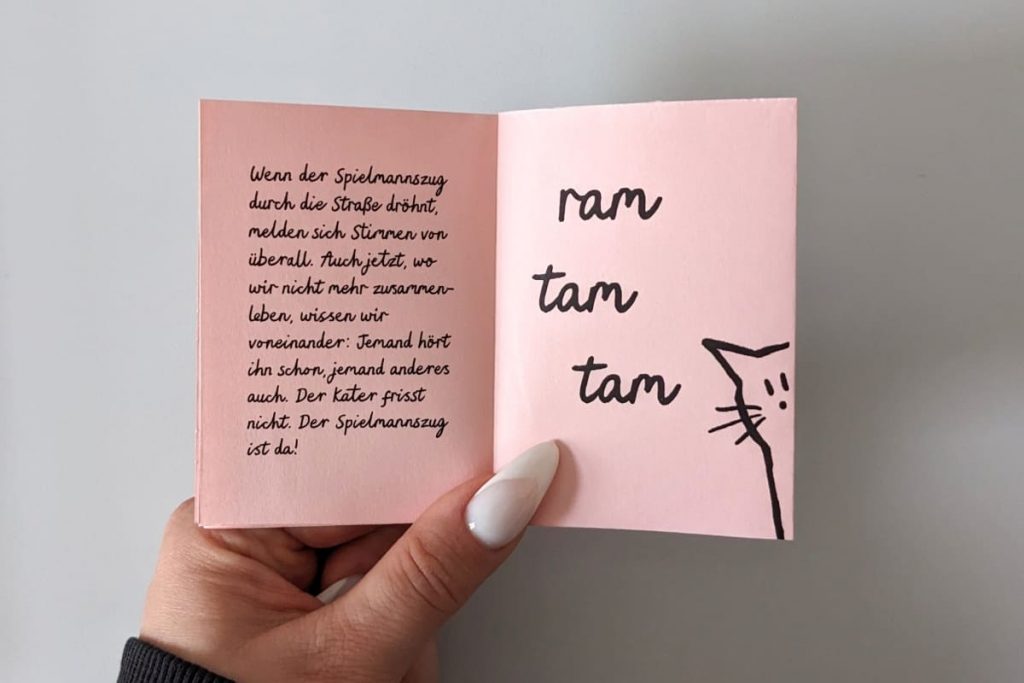 Wenn der Spielmannszug
durch die Straße dröhnt,
melden sich Stimmen von
überall. Auch jetzt, wo
wir nicht mehr zusammen-
leben, wissen wir
voneinander: Jemand hört
ihn schon, jemand anderes
auch. Der Kater frisst
nicht. Der Spielmannszug
ist da!
ram
tam
tam